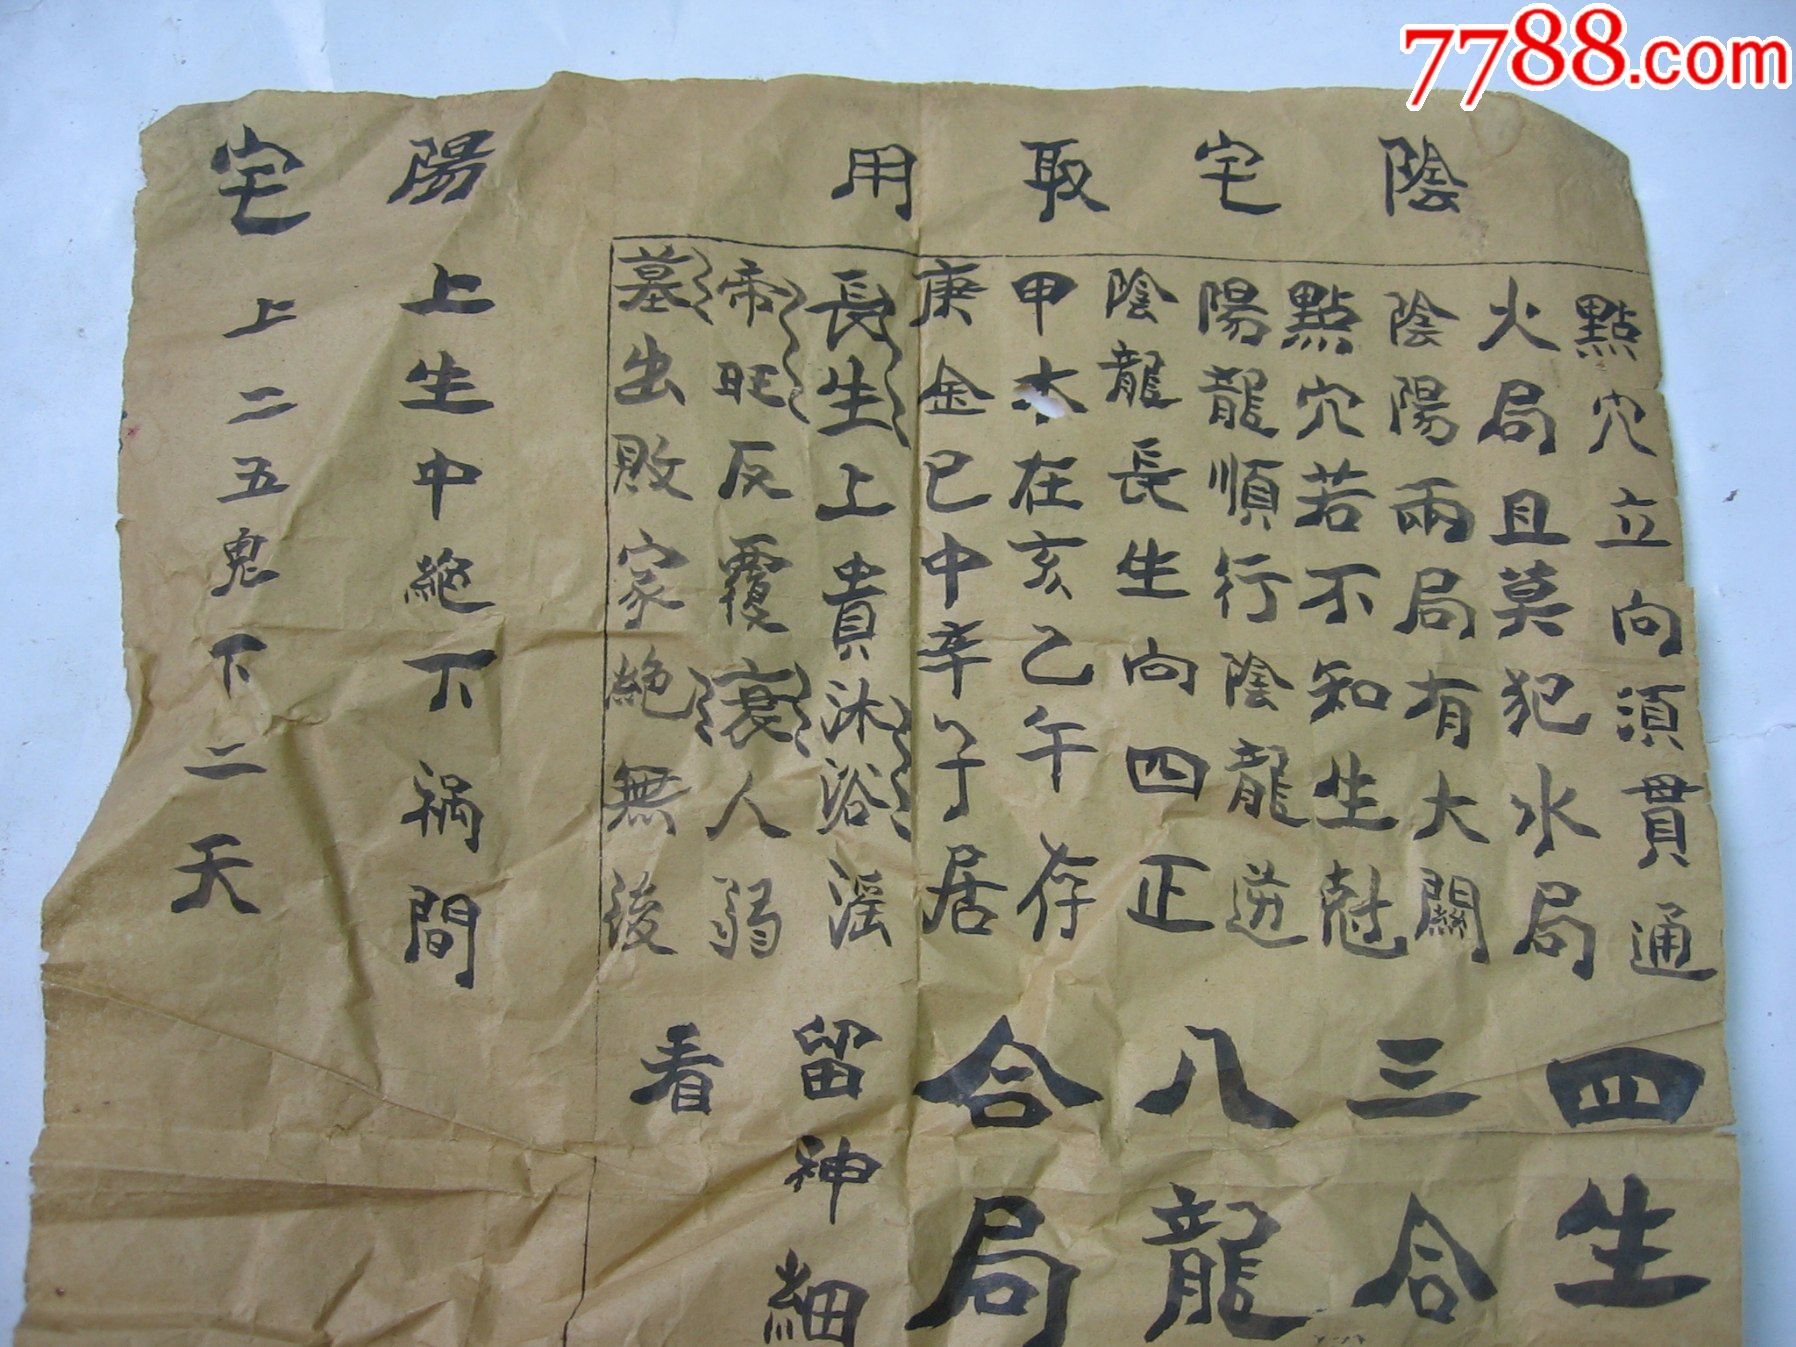 7788.com
陰宅取用
點穴立向須貫通
火局且莫犯水局
陰陽兩局有大關
點穴若不知生尅
陽龍順行陰龍逆
陰龍長生向四正
甲木在亥乙午存
庚金巳中辛子居
長生上貴沐浴淫
帝旺反覆衰人弱
墓出敗家絕無後
四生
三合
八龍
合局
留神細
看
陽上生中絕下禍間
宅上二五鬼下二天